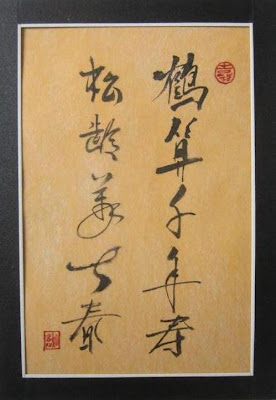 鶴算千年寿
松齡萬古春